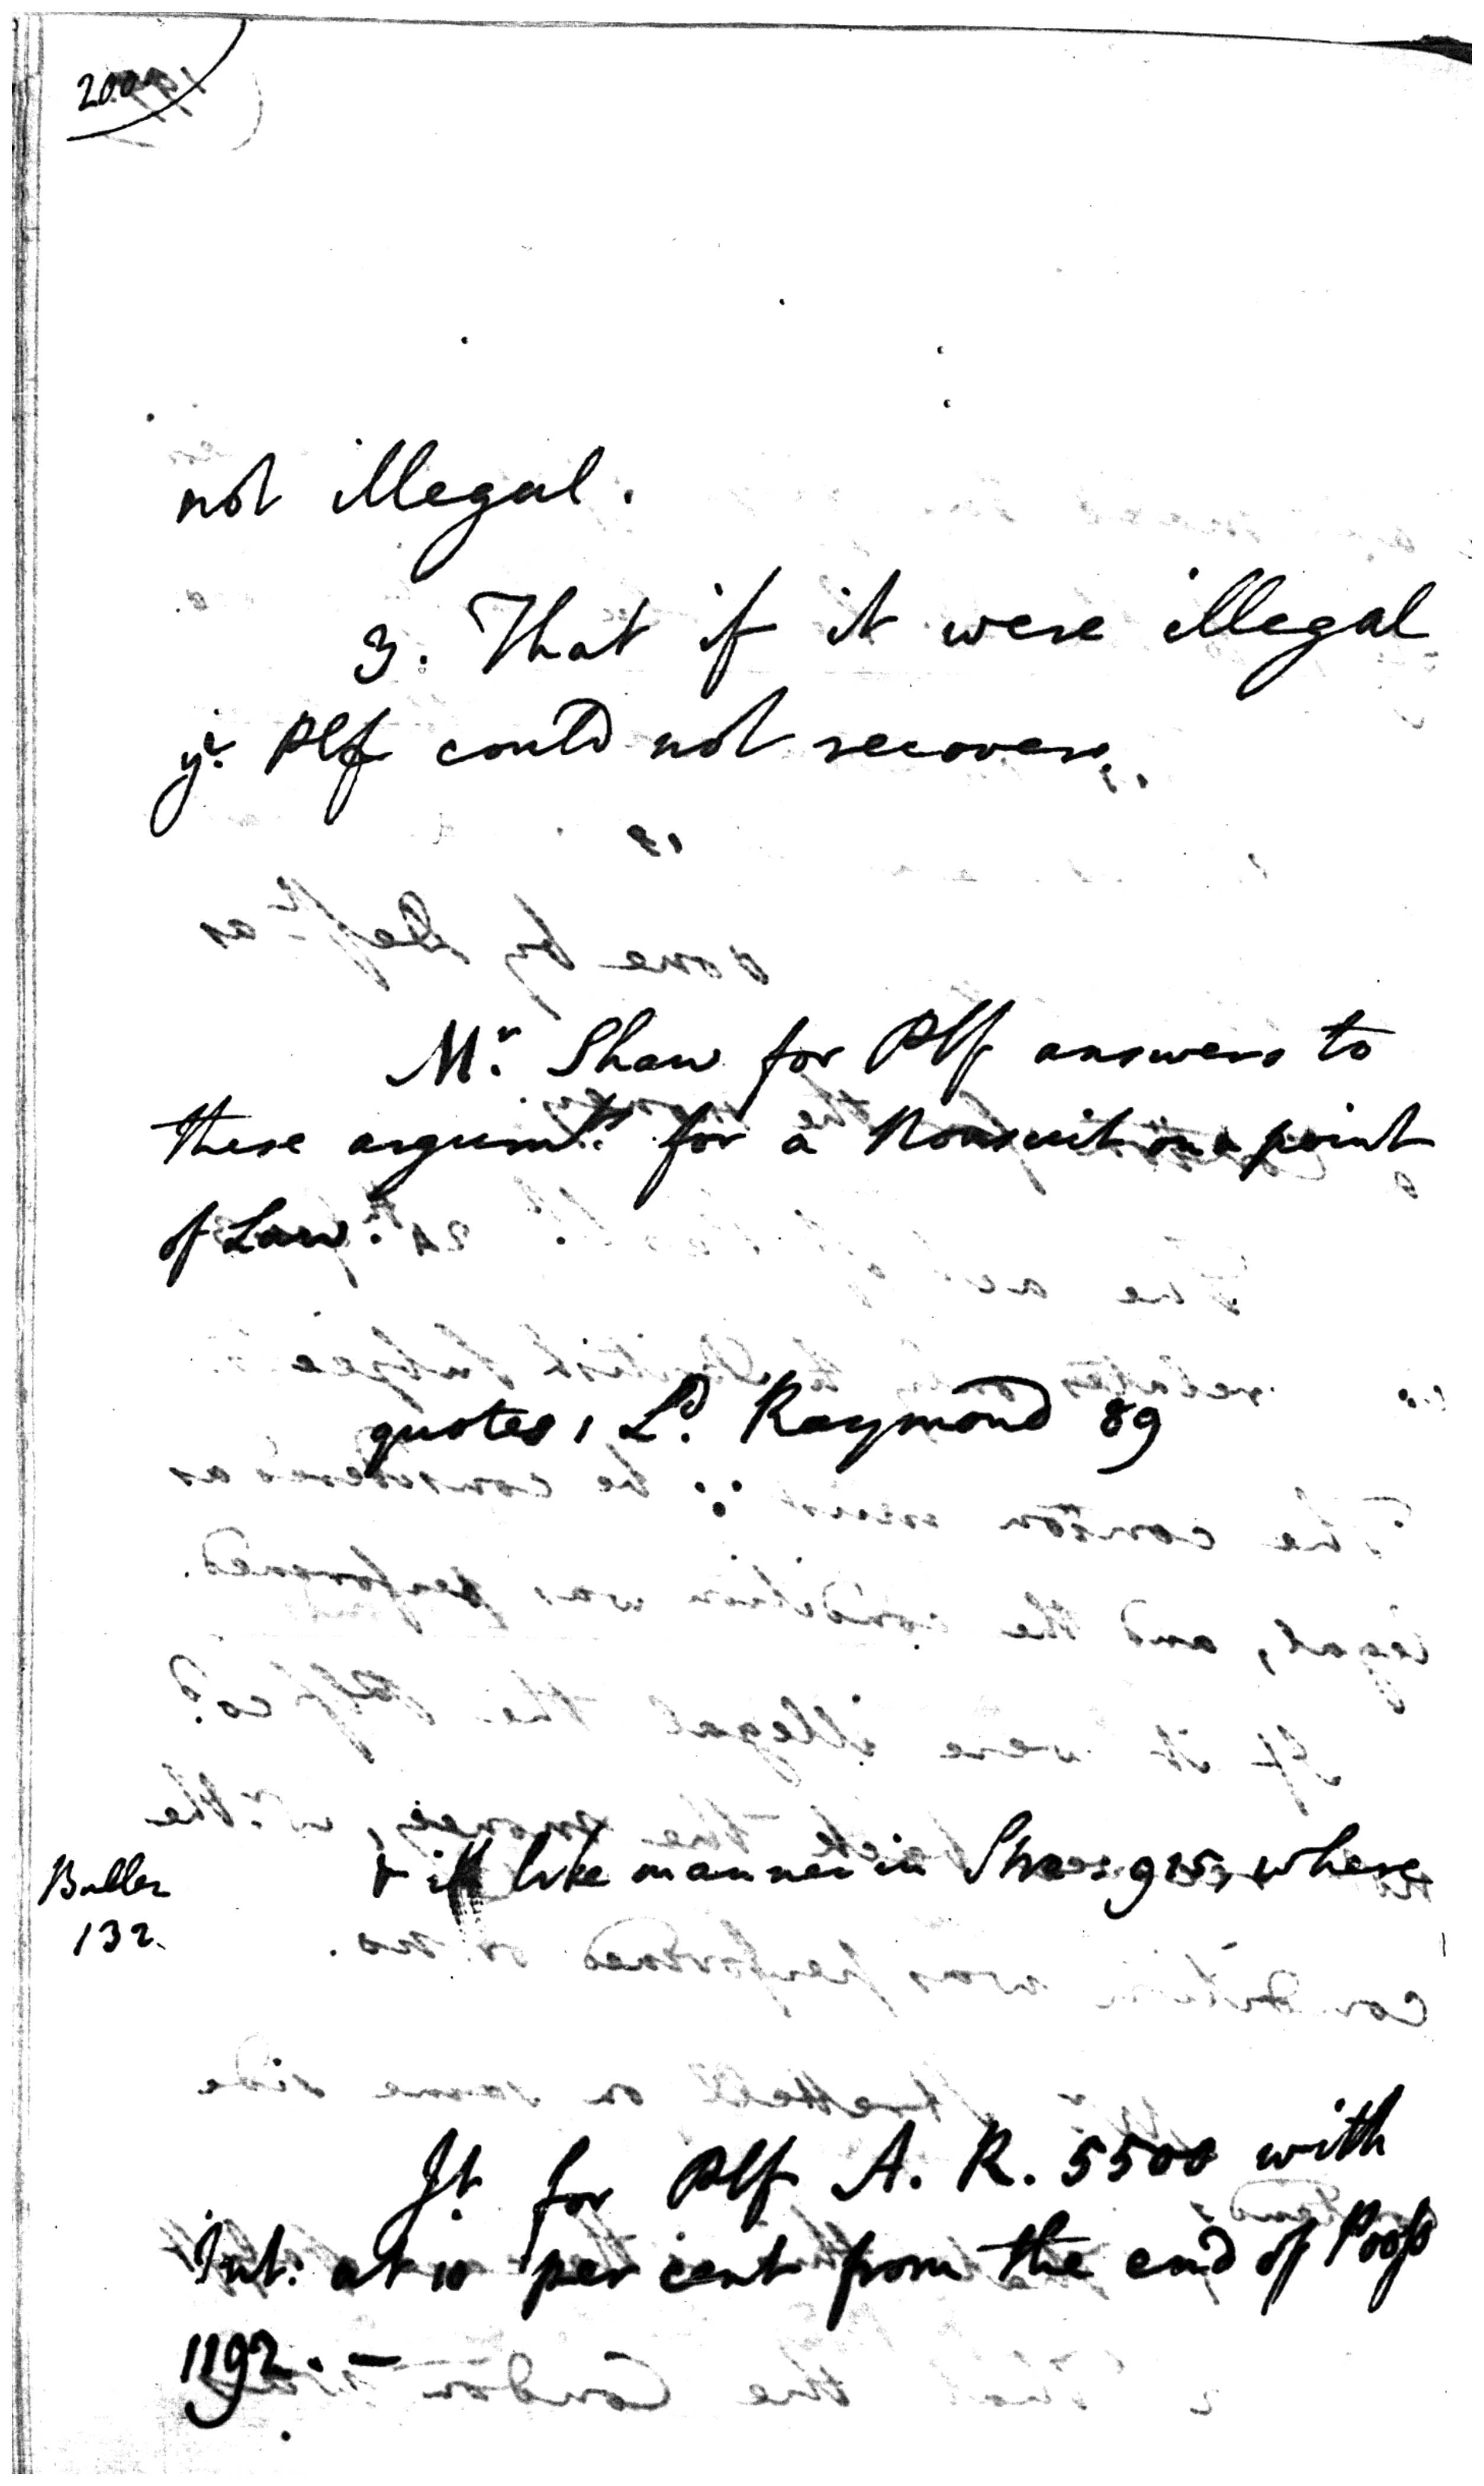 200
not illegal.
3. That if it were illegal
ye. Plf could not recover.
Mr. Shaw for Plf answers to
these argumts. for a Nonsuit on a point
of Law.
quotes, 1 Ld. Raymond 89
Buller
132.
& in like manner in Stra: 915, where
Jt. for Plf A. R. 5500 with
Int: at 10 per cent from the end of Poos
1192. —